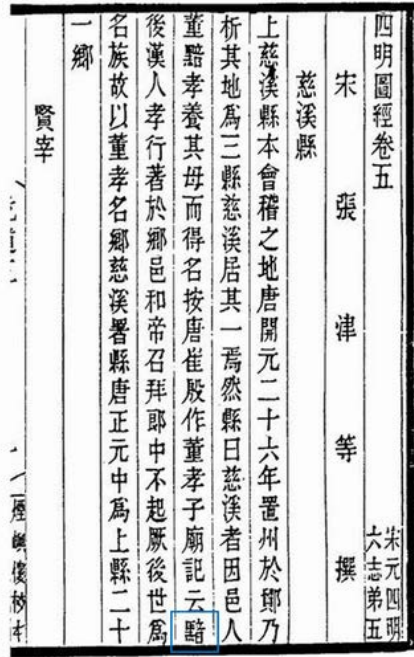 四明圖經卷五
宋元四明
六志第五
宋張津等撰
慈溪縣
上慈溪縣本會稽之地唐開元二十六年置州於鄮乃
析其地爲三縣慈溪居其一焉然縣曰慈溪者因邑人
董黯孝養其母而得名按唐崔殷作董孝子廟記云黯
後漢人孝行著於鄉邑和帝召拜郎中不起厥後世爲
名族故以董孝名鄉慈溪署縣唐正元中爲上縣二十
一鄉
賢宰